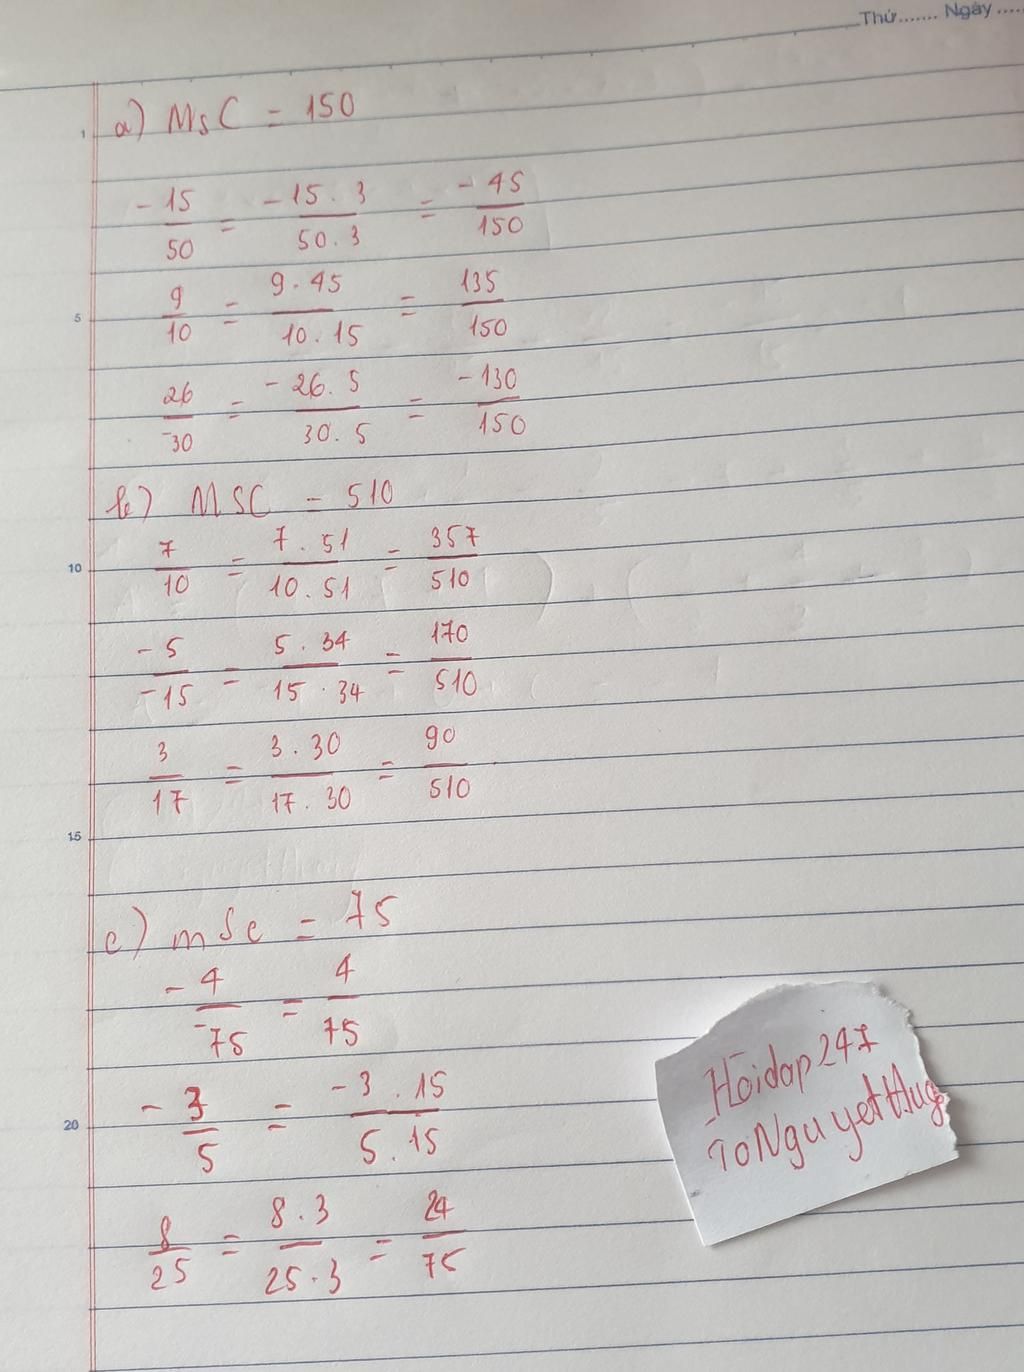 Thứ....... Ngày .....
a) MSC = 150
-15/50 = -15.3/50.3 = -45/150
9/10 = 9.45/10.15 = 135/150
26/-30 = -26.5/30.5 = -130/150
b) MSC = 510
7/10 = 7.51/10.51 = 357/510
-5/-15 = 5.34/15.34 = 170/510
3/17 = 3.30/17.30 = 90/510
c) MSC = 75
-4/-75 = 4/75
-3/5 = -3.15/5.15
8/25 = 8.3/25.3 = 24/75
1
5
10
15
20
Hoidap247